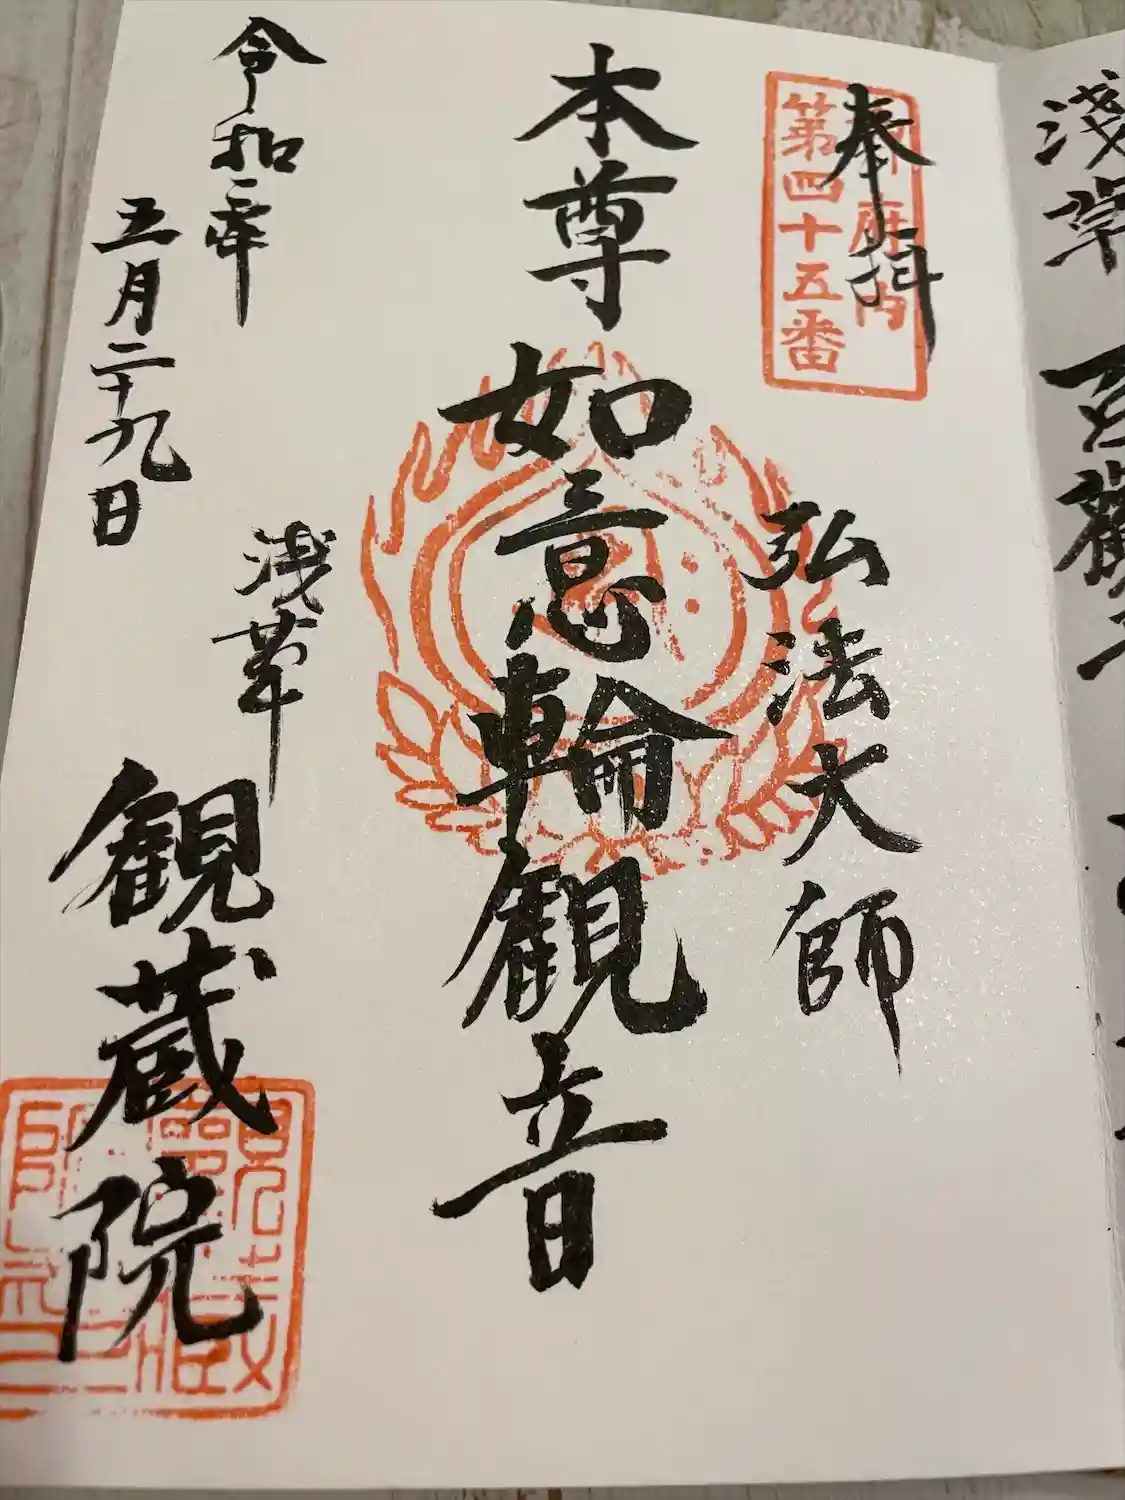 奉拝
御府内
第四十五番
弘法大師
本尊如意輪観音
令和二年
五月二十九日
浅草
観蔵院
淺草